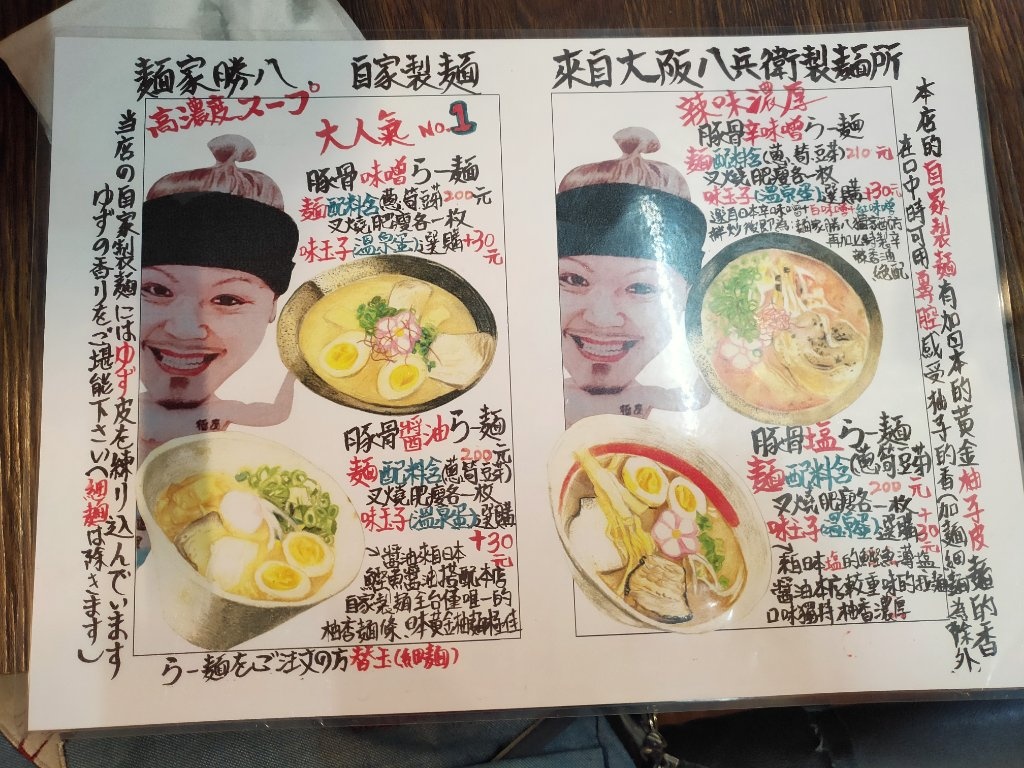 麵家勝八 自家製麵
高濃度スープ
大人氣 No.1
豚骨味噌らー麵
麵配料含(蔥筍豆芽)200元
叉燒肥瘦各一枚
味玉子(溫泉蛋)選購+30元
豚骨醬油らー麵
200元
麵配料含(蔥筍豆芽)
叉燒肥瘦各一枚
味玉子(溫泉蛋)選購
+30元
醬油來自日本
鰹魚醬油搭配本店
自家製麵全台僅唯一的
柚香麵條
らー麵をご注文の方替玉(細麵)
当店の自家製麵にはゆず皮を練り込んでいます
ゆずの香りをご堪能下さいへ細麵は除きます」
來自大阪八兵衛製麵所
辣味濃厚
豚骨辛味噌らー麵
麵配料含(蔥筍豆芽)210元
叉燒肥瘦各一枚
味玉子(溫泉蛋)選購+30元
豚骨塩らー麵
麵配料含(蔥筍豆芽)
叉燒肥瘦各一枚 200元
味玉子(溫泉蛋)選購+30元
來自日本塩的鰹魚
口味獨特柚香濃厚
本店的自家製麵有加日本的黃金柚子皮
在口中時可用鼻腔感受柚子的香
麵的香